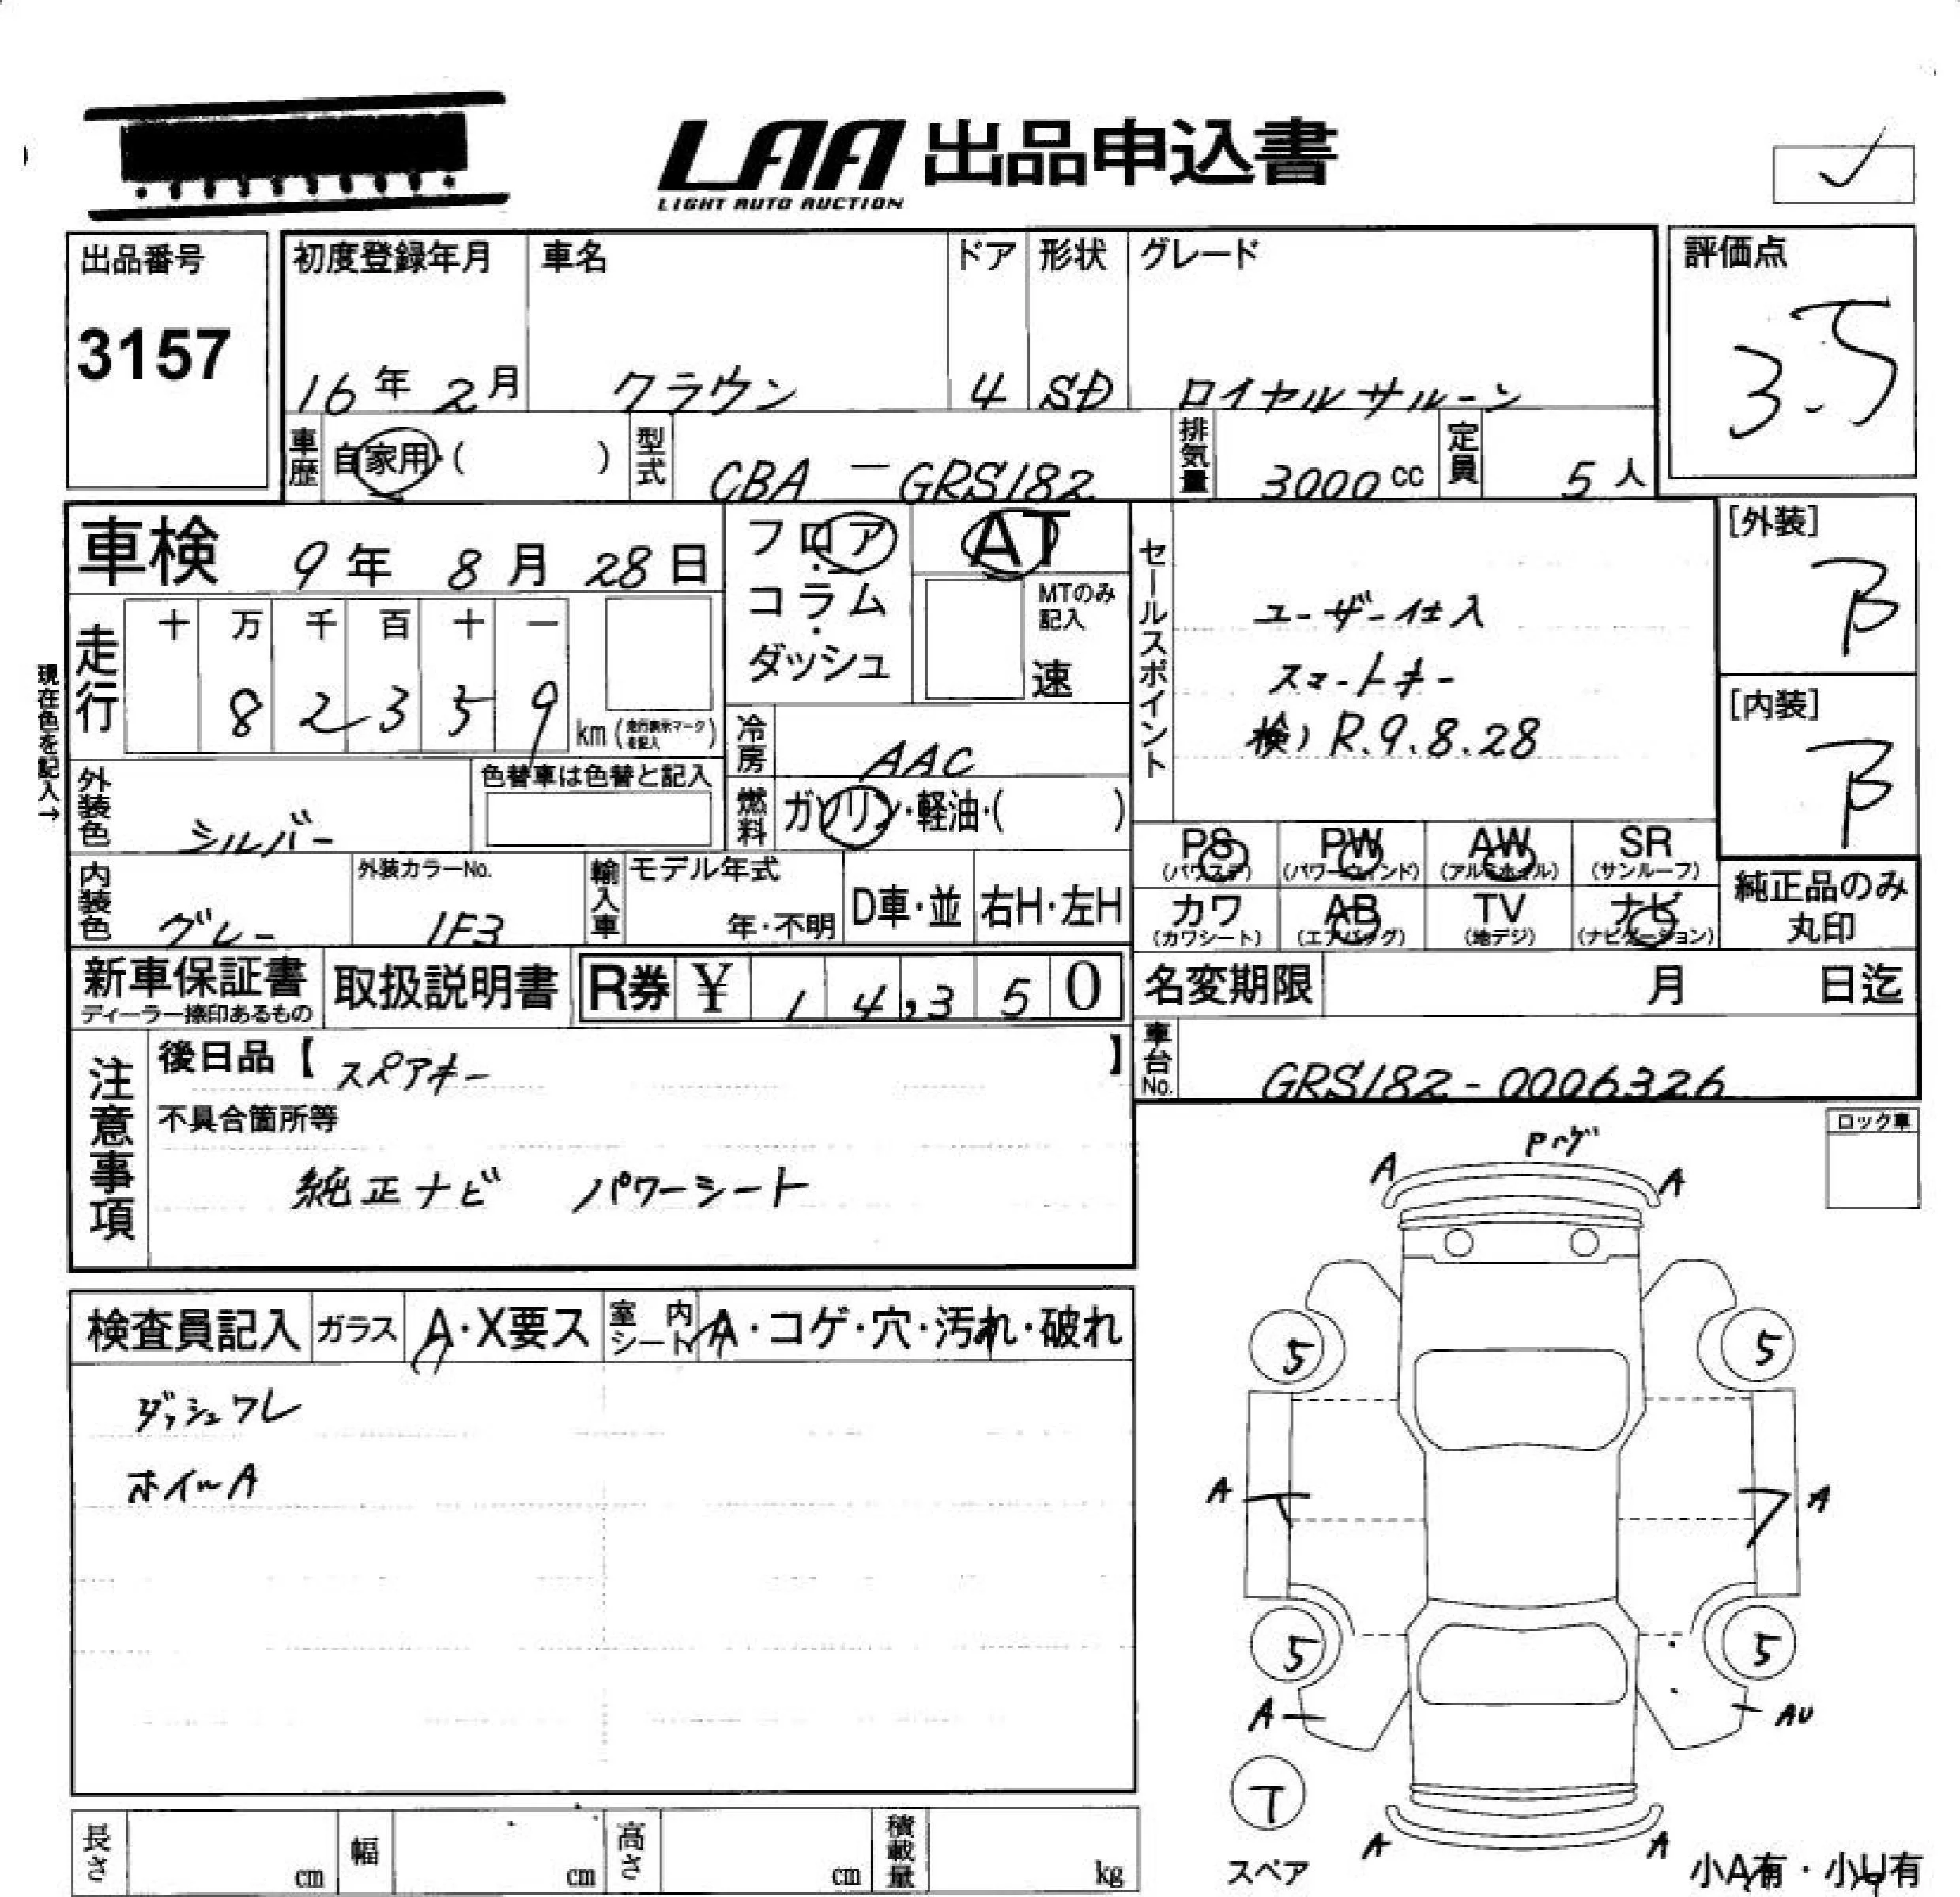 LAA 出品申込書
LIGHT AUTO AUCTION
出品番号
3157
初度登録年月
16年 2月
車名
クラウン
ドア
4
形状
SD
グレード
ロイヤルサルーン
評価点
3.5
車歴
自家用・( )
型式
CBA-GRS182
排気量
3000cc
定員
5人
車検 9年 8月 28日
フロア・コラム・ダッシュ
AT
MTのみ記入
速
セールスポイント
ユーザー仕入
スマートキー
検)R.9.8.28
[外装]
B
[内装]
B
現在色を記入→
走行
十 万 千 百 十 一
8 2 3 5 9
km(走行表示マークを記入)
冷房
AAC
外装色
シルバー
色替車は色替と記入
燃料
ガソリン・軽油・( )
PS
(パワステ)
PW
(パワーウインド)
AW
(アルミホイル)
SR
(サンルーフ)
カワ
(カワシート)
AB
(エアバッグ)
TV
(地デジ)
ナビ
(ナビゲーション)
純正品のみ
丸印
内装色
グレー
外装カラーNo.
1F3
輸入車
モデル年式
年・不明
D車・並
右H・左H
新車保証書
ディーラー捺印あるもの
取扱説明書
R券 ¥ 14,350
名変期限 月 日迄
車台No.
GRS182-0006326
注意事項
後日品【スペアキー】
不具合箇所等
純正ナビ パワーシート
ロック車
検査員記入
ガラス
A・X要ス
室内シート
A・コゲ・穴・汚れ・破れ
ダッシュワレ
ホイールA
Pハゲ
A A
5 5
A A
5 5
A AU
T
スペア
A A
小A有・小U有
長さ cm
幅 cm
高さ cm
積載量 kg